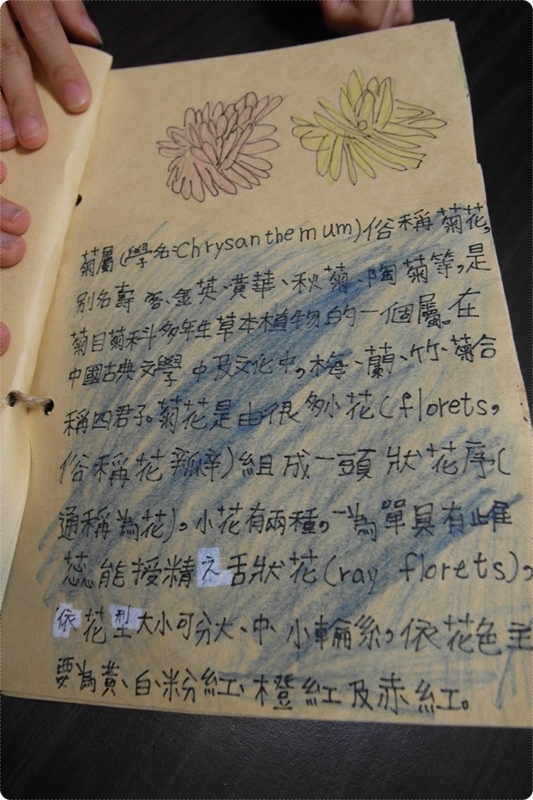 菊屬(學名:Chrysanthemum)俗稱菊花,
別名壽客、金英、黃華、秋菊、陶菊等,是
菊目菊科多年生草本植物的一個屬。在
中國古典文學中及文化中,梅、蘭、竹、菊合
稱四君子。菊花是由很多小花(florets,
俗稱花瓣)組成一頭狀花序(
通稱為花)。小花有兩種。一為單具有雌
蕊能授精之舌狀花(ray florets),
依花型大小可分大、中、小輪系。依花色主
要為黃、白、粉紅、橙紅及赤紅。